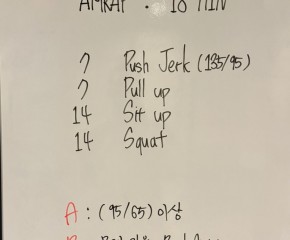 AMRAP : 10 MIN
7 Push Jerk (135/95)
7 Pull up
14 Sit up
14 Squat
A : (95/65) 이상